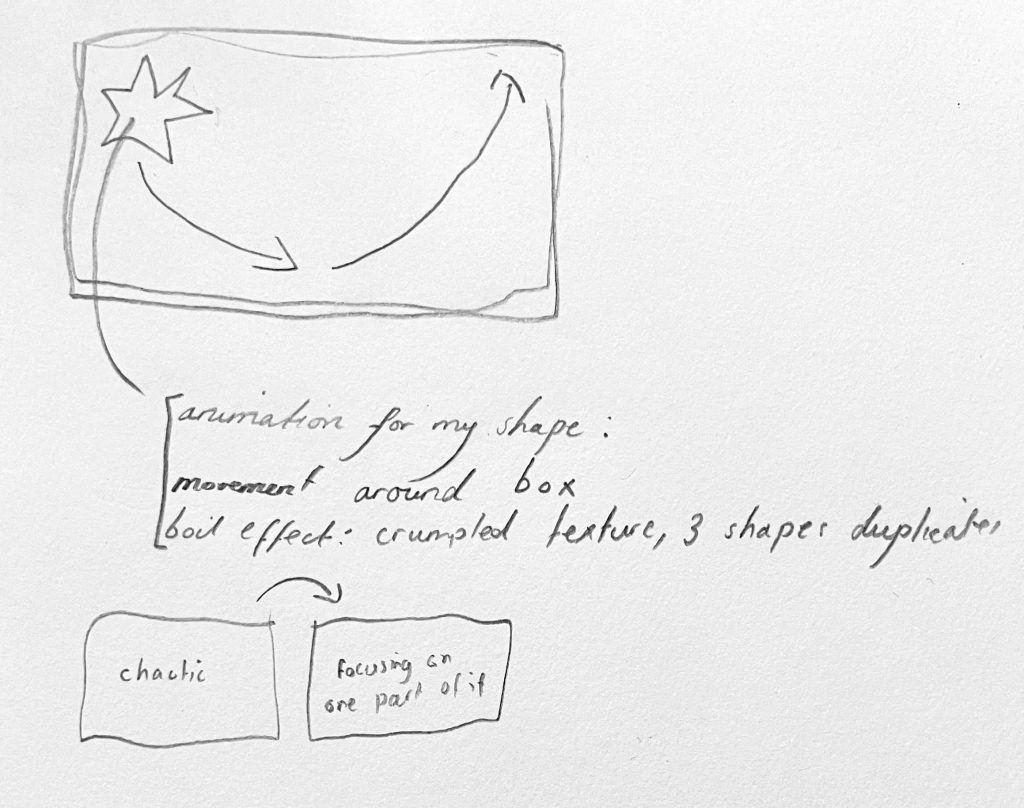 animation for my shape:
movement around box
boil effect: crumpled texture, 3 shapes duplicates
chaotic
focusing on
one part of it